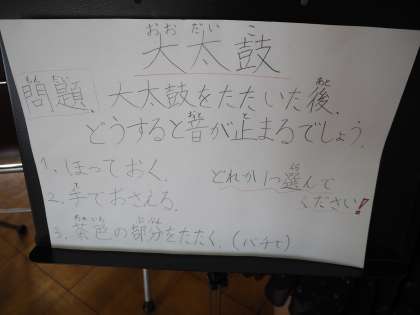 大太鼓
問題. 大太鼓をたたいた後、
どうすると音が止まるでしょう.
1. ほっておく.
2. 手でおさえる.
3. 茶色の部分をたたく. (バチで)
どれか1つ選んで
ください!